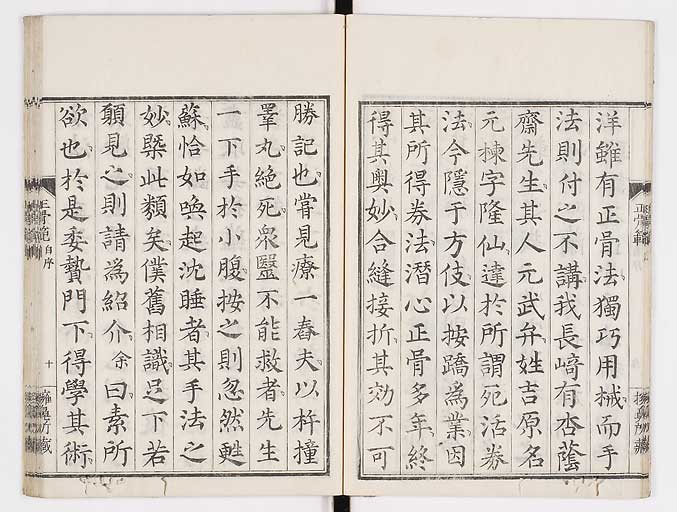 洋雖有正骨法獨巧用械而手
法則付之不講我長﨑有杏蔭
齋先生其人元武弁姓吉原名
元棟字隆仙達於所謂死活劵
法今隱于方伎以按蹻為業因
其所得劵法潛心正骨多年終
得其奧妙合縫接折其効不可
勝記也甞見療一舂夫以杵撞
睪丸絶死衆毉不能救者先生
一下手於小腹按之則忽然甦
蘇恰如喚起沈睡者其手法之
妙槩此類矣僕舊相識足下若
願見之則請為紹介余曰素所
欲也於是委贄門下得學其術
正骨範 自序
十